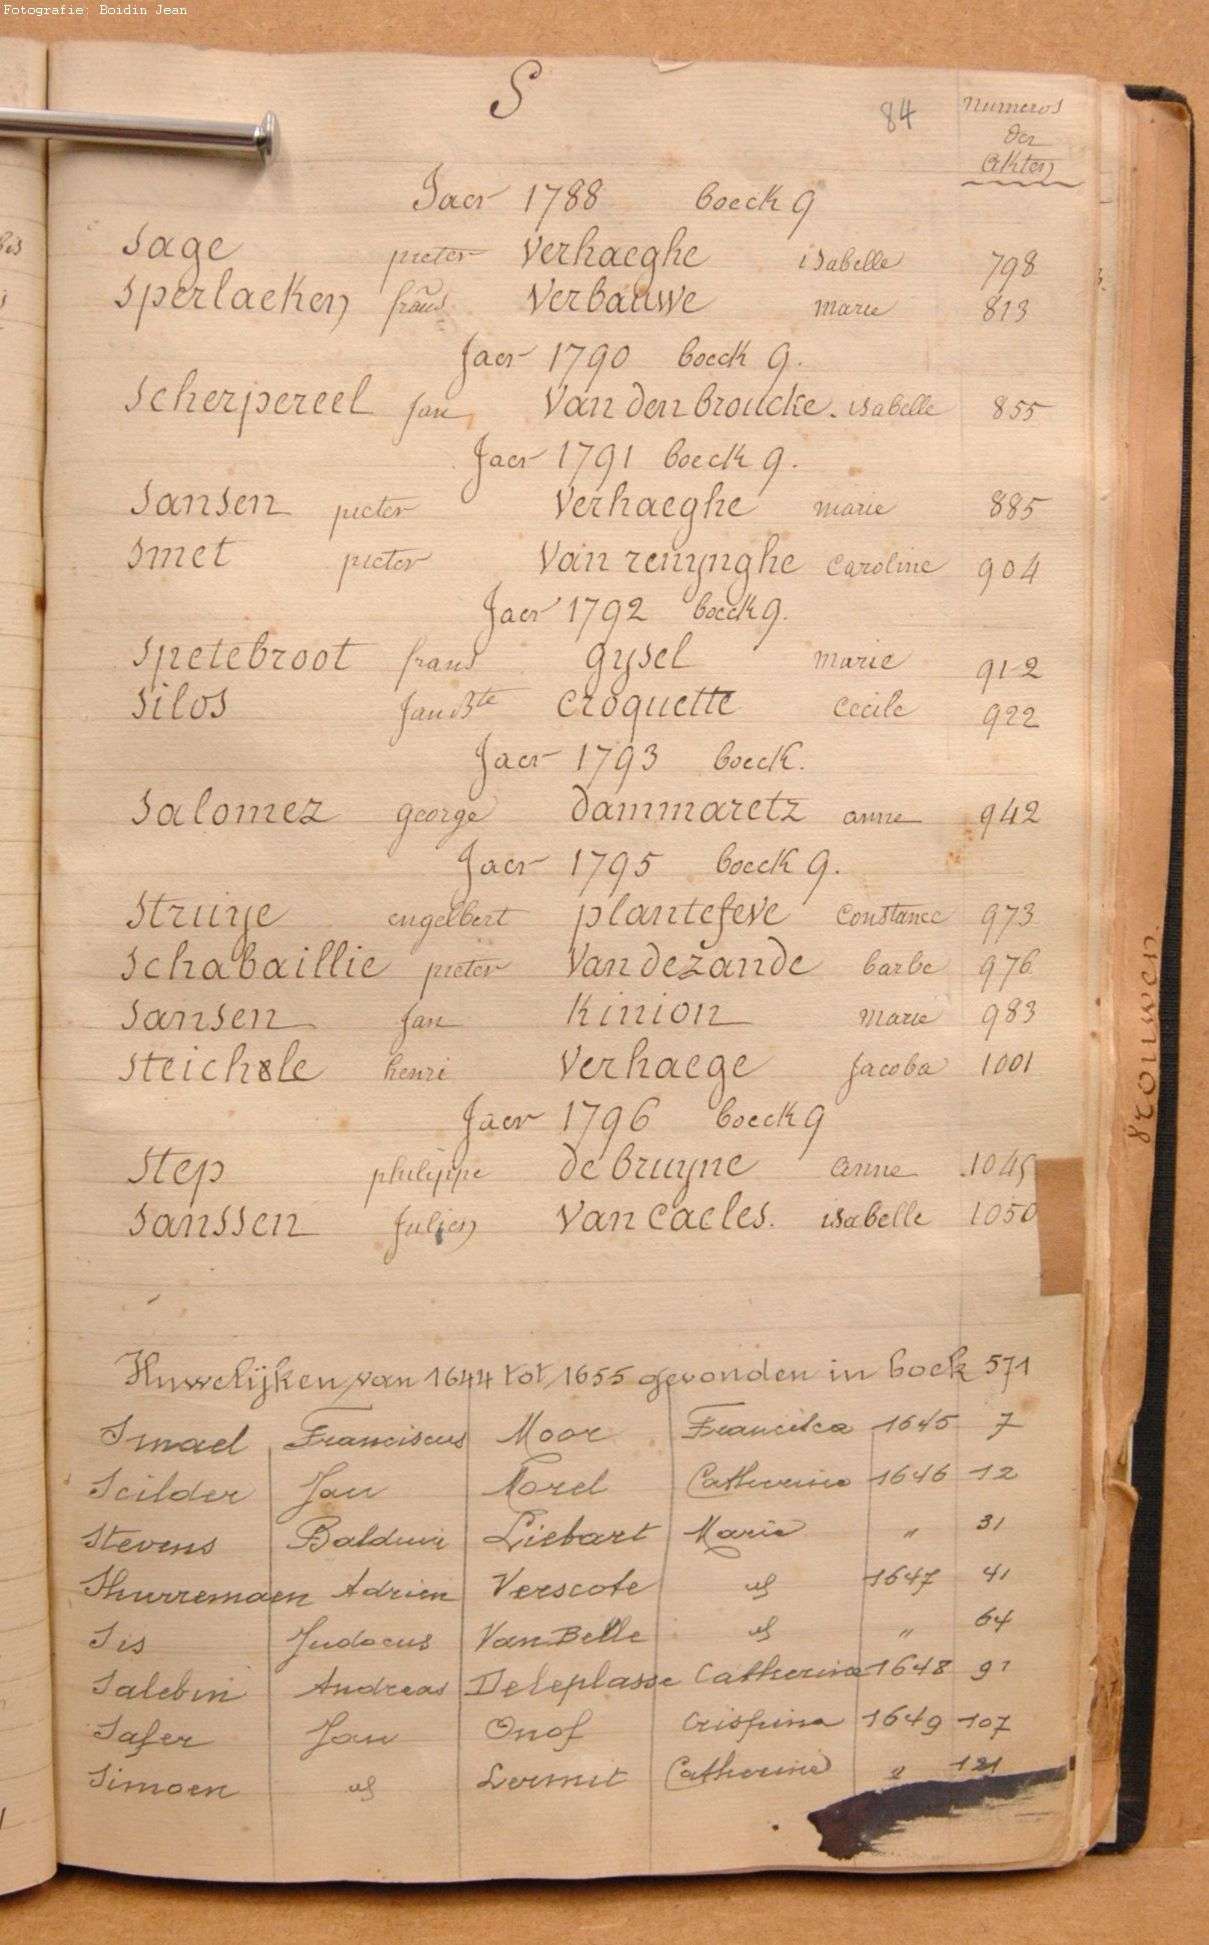 Fotografie: Boidin Jean
S
84
Numeros
der
Akten
Jaer 1788 boeck 9
Sage pieter Verhaeghe isabelle 798
Sperlaeken frans Verbauwe marie 813
Jaer 1790 boeck 9.
Scherpereel Jan Van den broucke. isabelle 855
Jaer 1791 boeck 9.
Sansen pieter Verhaeghe marie 885
Smet pieter Van renynghe Caroline 904
Jaer 1792 boeck 9.
Spetebroot frans gysel marie 912
Silos Jan Bte Croquette Cecile 922
Jaer 1793 boeck.
Salomez george dammaretz anne 942
Jaer 1795 boeck 9.
Strunje engelbert plantefeve Constance 973
Schabaillie pieter Van dezande barbe 976
Sansen Jan Kinion marie 983
Steichele henri Verhaege Jacoba 1001
Jaer 1796 boeck 9
Step philippe de bruyne anne 1045
Sanssen Julien Van Cacles. isabelle 1050
Huwelijken van 1644 tot 1655 gevonden in boek 571
Smael Franciscus Moor Francisca 1645 7
Scilder Jan Morel Catherine 1646 12
Stevens Balduin Liebart Marie " 31
Shurremaen Adrien Verscote id 1647 41
Sis Judocus Van Belle id " 64
Salebin Andreas Deleplasse Catherina 1648 91
Safer Jan Onof Crispina 1649 107
Simoen id Lermit Catherine " 121
Vrouwen